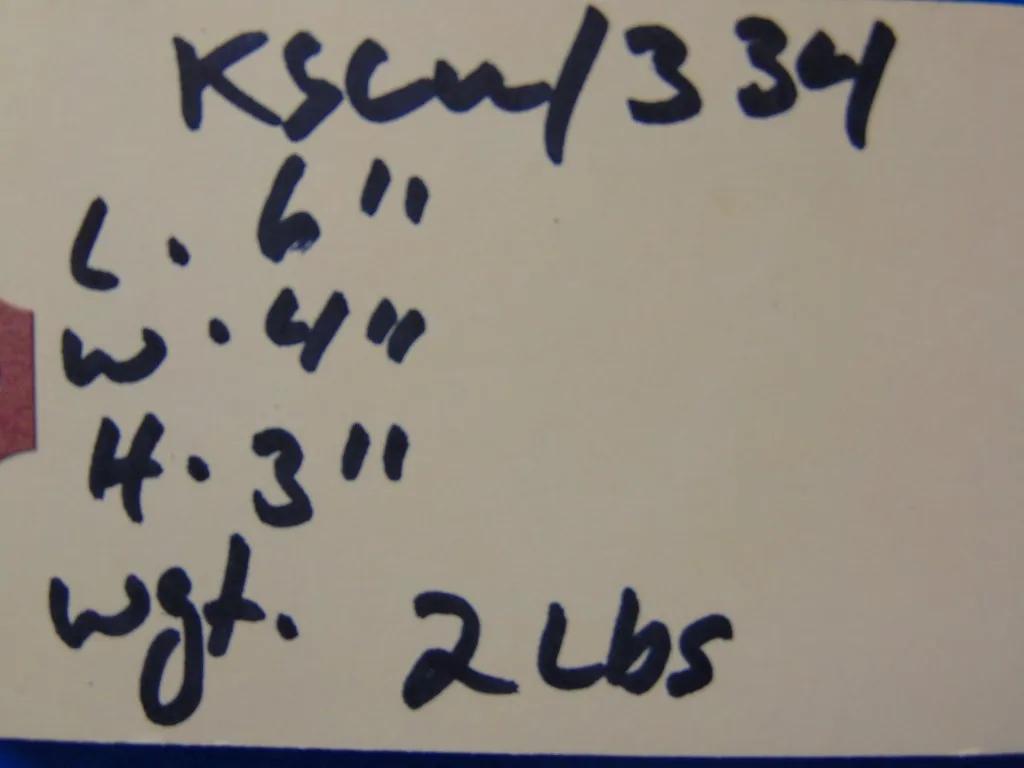 KSCW/334
L. 6"
W. 4"
H. 3"
wgt. 2Lbs